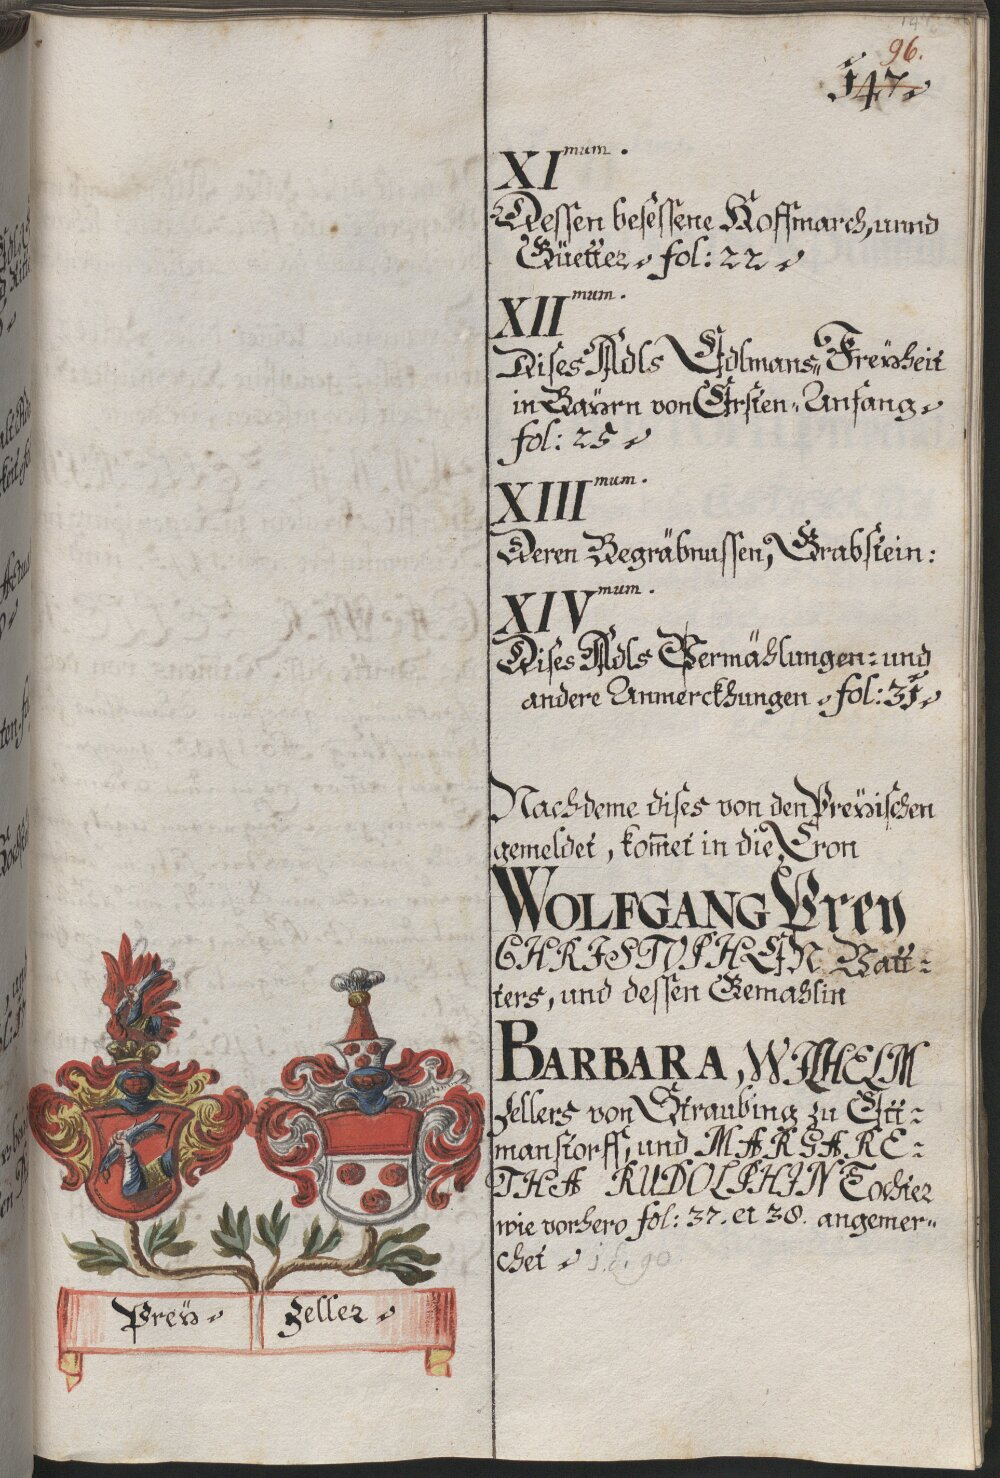 96.
147
XI mum.
Dessen besessene Hoffmarch, unnd
Güetter fol: 22
XII mum.
Dises Adls Edlmans„ Freÿheit
in Baÿrn von Ersten„ Anfang
fol: 25
XIII mum.
Deren Begräbnussen, Grabstein:
XIV mum.
Dises Adls Vermählungen: und
andere Anmerckhungen fol: 31
Nachdeme dises von den Preÿischen
gemeldet, kom̃et in die Cron
WOLFGANG Preÿ
CHRISTOPHEN Vatt:
ters, und dessen Gemahlin
BARBARA, WILHELM
Zellers von Straubing zu Ett:
manstorff, und MARGARE:
THA RUDOLPHIN Tochter
wie vorhero fol: 37. et 38. angemer„
chet
Preÿ Zeller